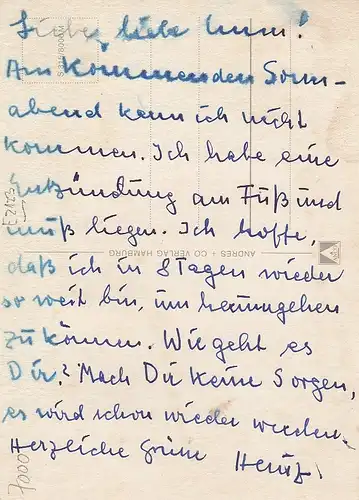 Liebe, liebe Mum!
Am kommenden Sonn-
abend kann ich nicht
kommen. Ich habe eine
Entzündung am Fuß und
muß liegen. Ich hoffe,
daß ich in 8 Tagen wieder
so weit bin, um herumgehen
zu können. Wie geht es
Dir? Mach Dir keine Sorgen,
es wird schon wieder werden.
Herzliche Grüße Heinz
ANDRES + CO VERLAG HAMBURG
E2123
7000